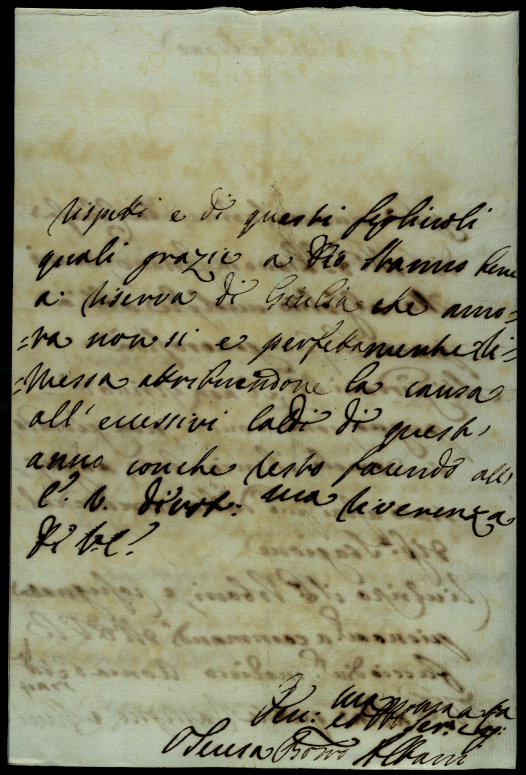 rispetti e di questi figliuoli
quali grazie a Dio stanno bene
a riserva di Giulia che anco-
=ra non si e perfettamente ri-
=messa attribuendone la causa
all' ecessivi caldi di quest'
anno con che resto facendo all'
E. V. divot: ma riverenza
Di V. E.